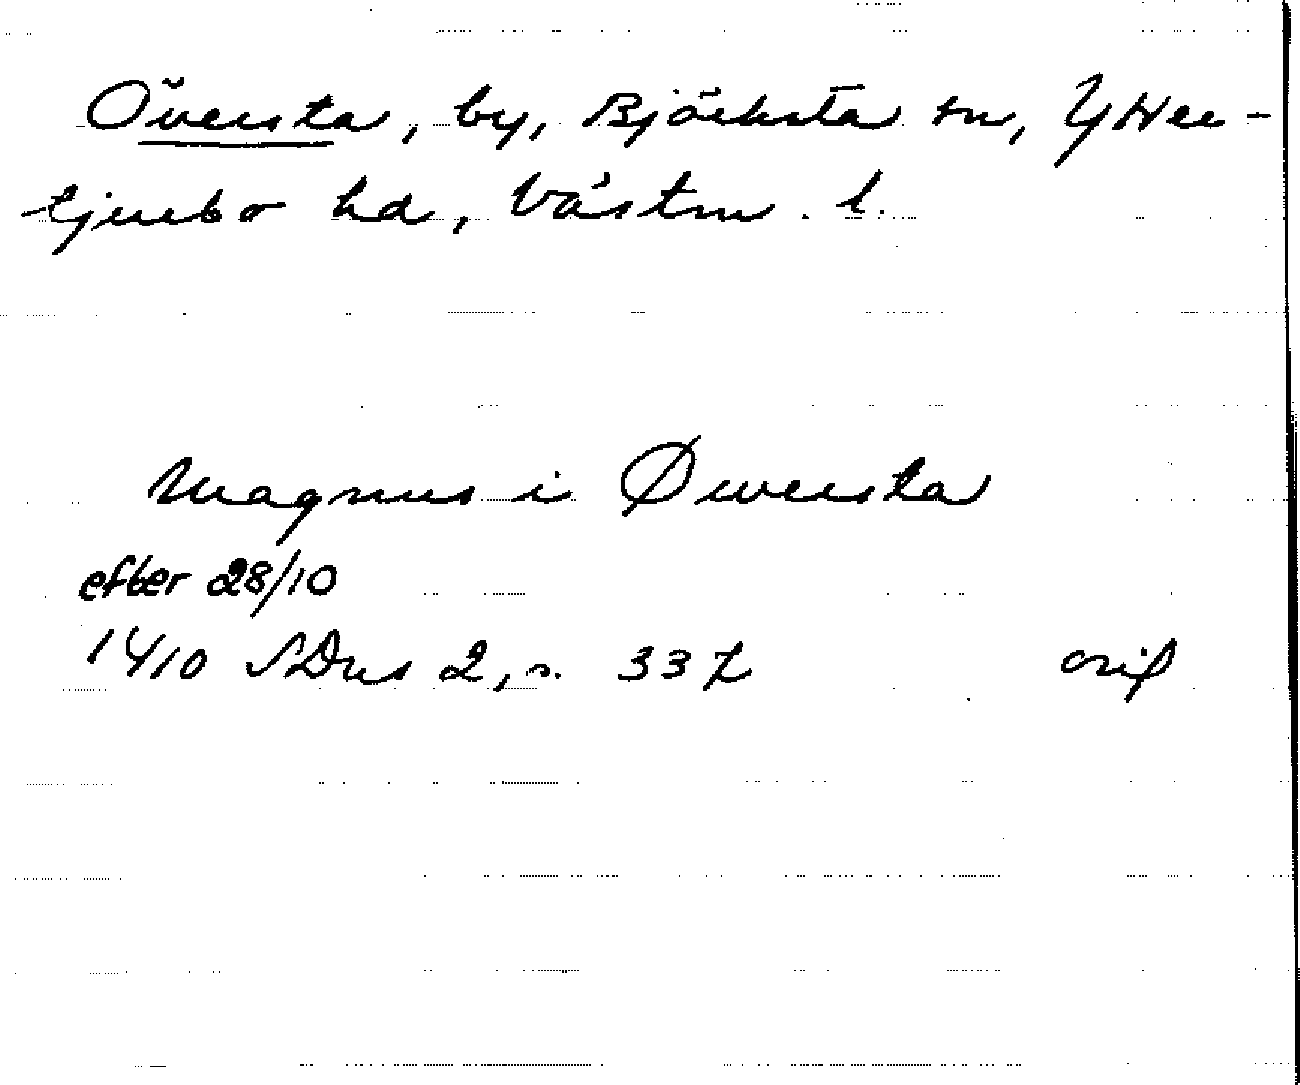 Öv̈ersta, by, Björksta sn, Ytter-
tjurbo hd, Västm. l.
Magnus i Øwersta
efter 28/10
1410 SDns 2, s. 337 orig